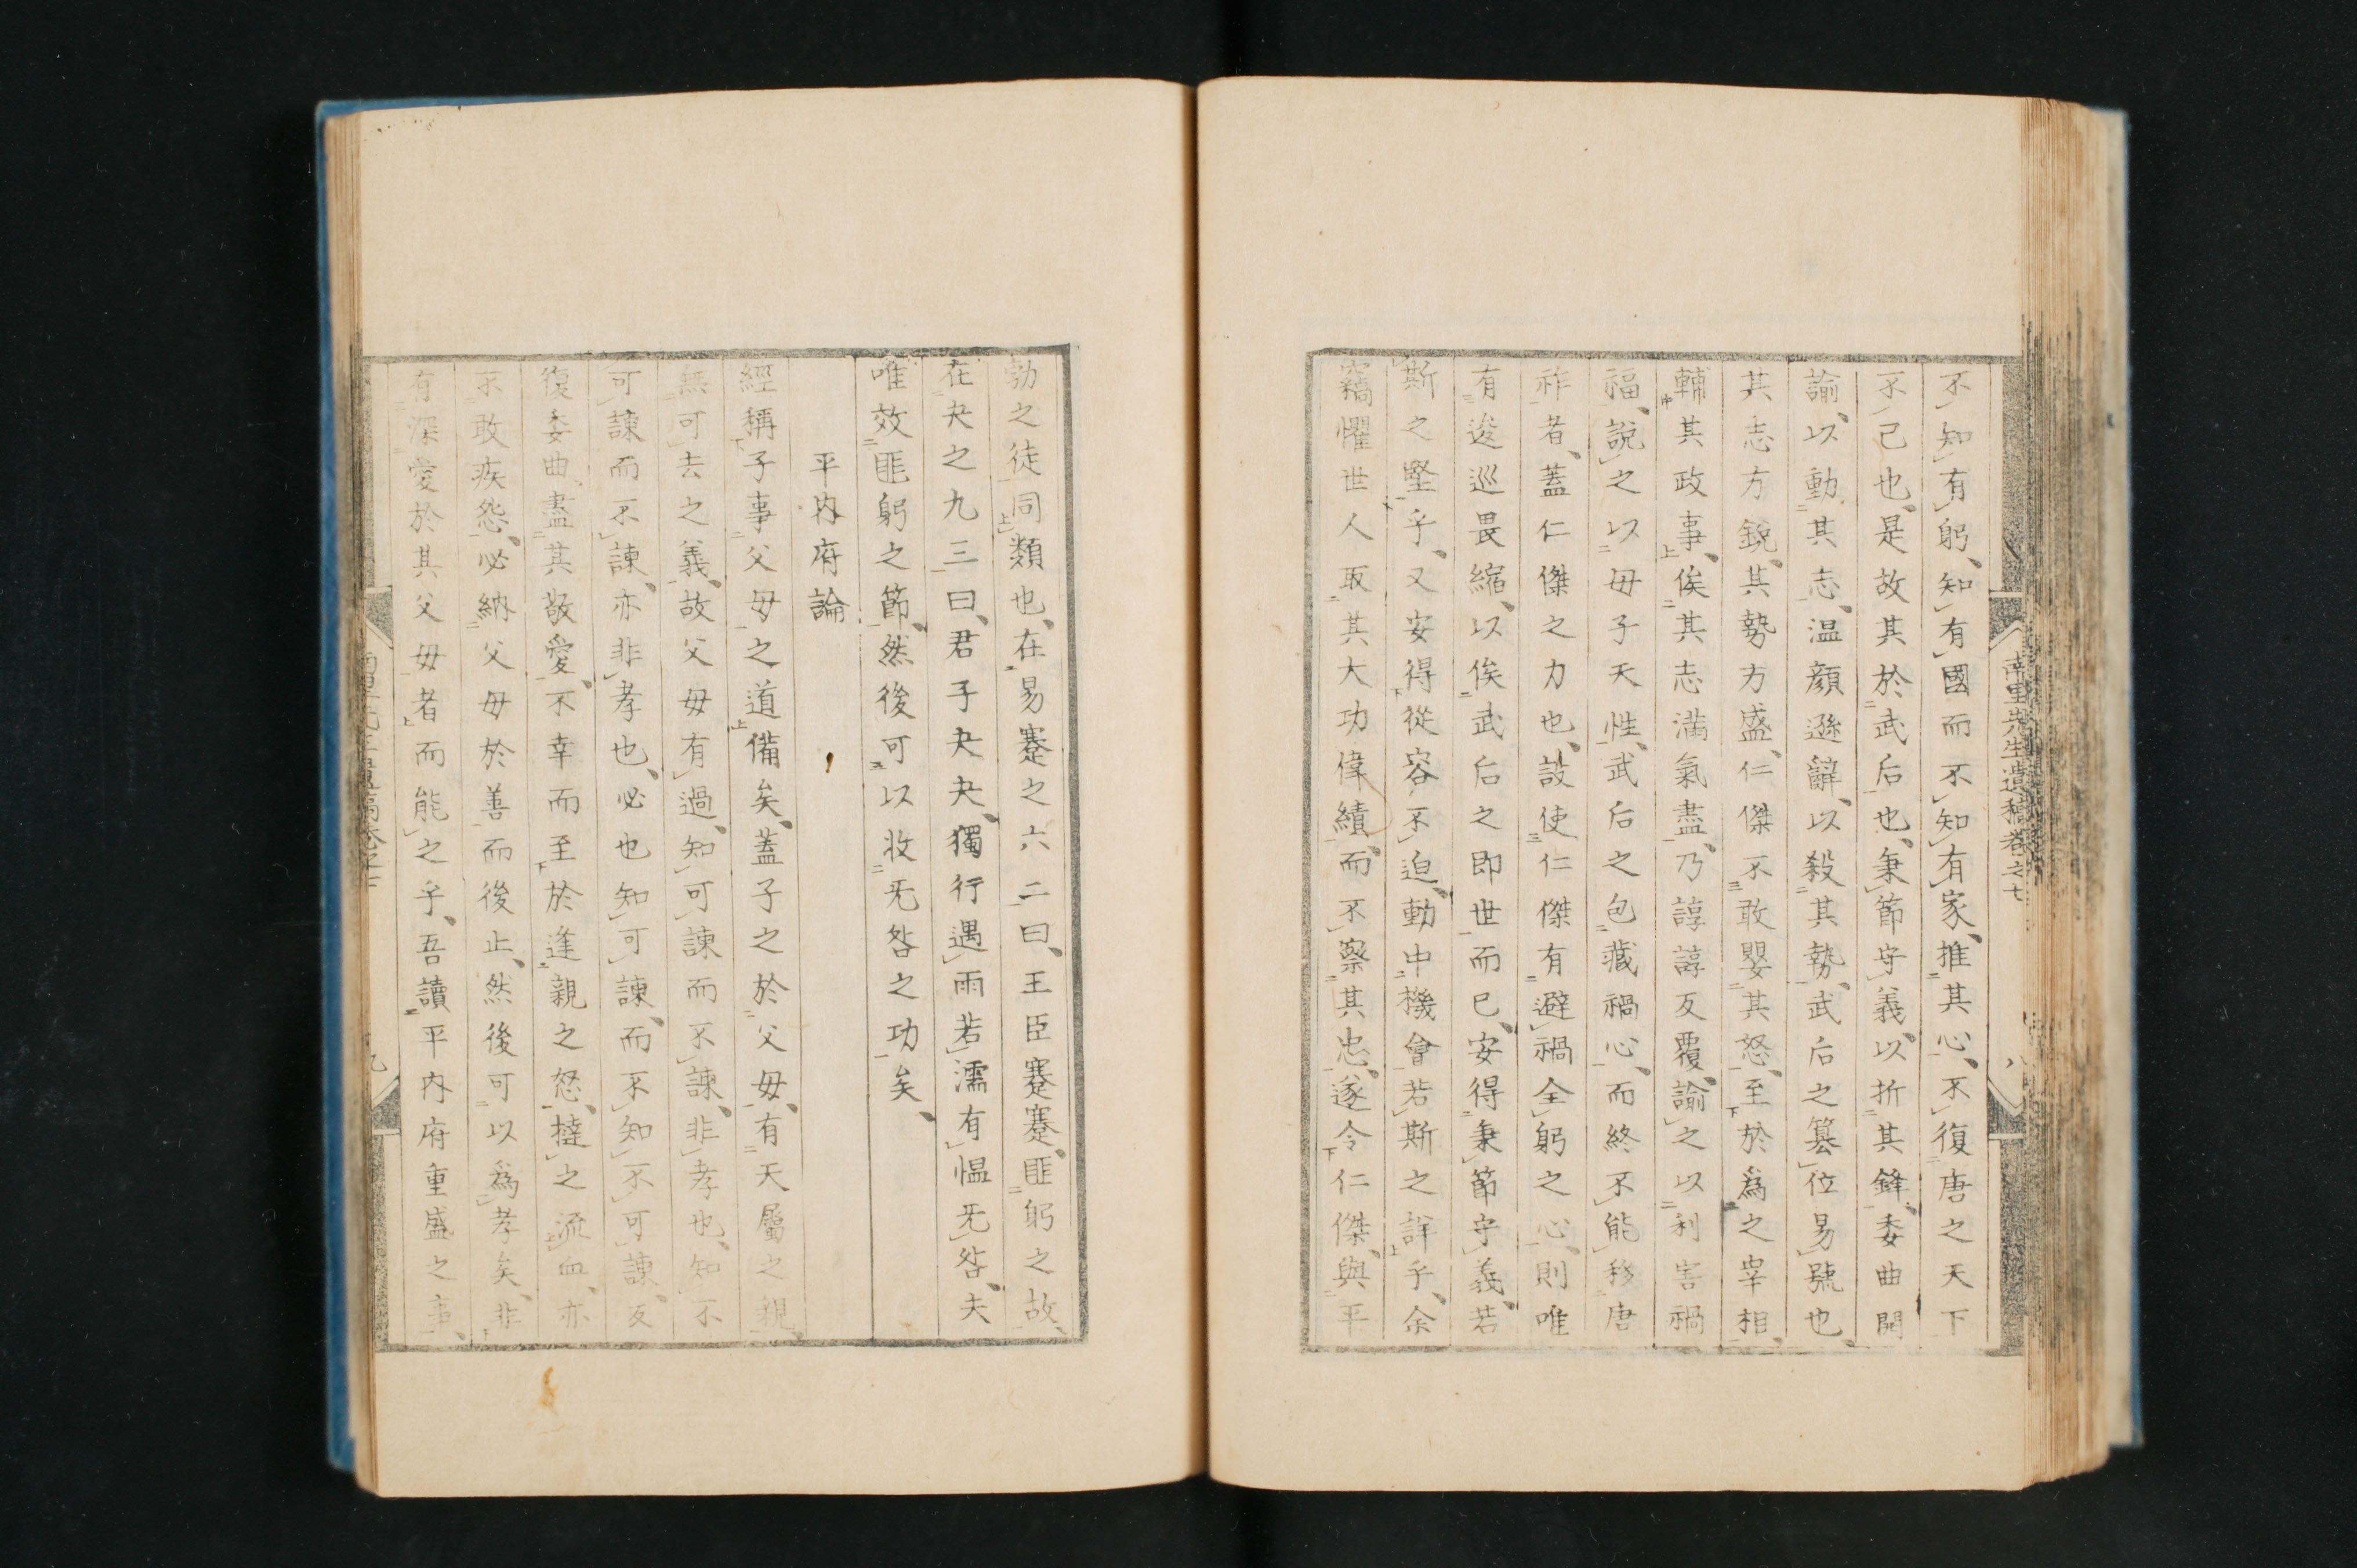 南里先生遺稿卷之七
八
不知有躬、知有國而不知有家、推其心、不復唐之天下
不已也、是故其於武后也、秉節守義、以折其鋒、委曲開
諭、以動其志、温顔遜辭、以殺其勢、武后之簒位易號也、
其志方鋭、其勢方盛、仁傑不敢嬰其怒、至於爲之宰相、
輔其政事、俟其志滿氣盡、乃諄諄反覆、諭之以利害禍
福、說之以母子天性、武后之包藏禍心、而終不能移唐
祚者、蓋仁傑之力也、設使仁傑有避禍全躬之心、則唯
有逡巡畏縮、以俟武后之即世而已、安得秉節守義、若
斯之堅乎、又安得從容不迫、動中機會、若斯之詳乎、余
竊懼世人取其大功偉績、而不察其忠、遂令仁傑、與平
勃之徒同類也、在易蹇之六二曰、王臣蹇蹇、匪躬之故、
在夬之九三曰、君子夬夬、獨行遇雨若濡有愠无咎、夫
唯效匪躬之節、然後可以收无咎之功矣、
平内府論
經稱子事父母之道備矣、蓋子之於父母、有天屬之親、
無可去之義、故父母有過、知可諫而不諫、非孝也、知不
可諫而不諫、亦非孝也、必也知可諫、而不知不可諫、反
復委曲、盡其敬愛、不幸而至於逢親之怒、撻之流血、亦
不敢疾怨、必納父母於善而後止、然後可以爲孝矣、非
有深愛於其父母者而能之乎、吾讀平内府重盛之事、
九